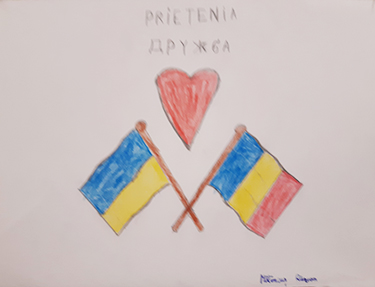 PRiETENIA
ДРУЖБА